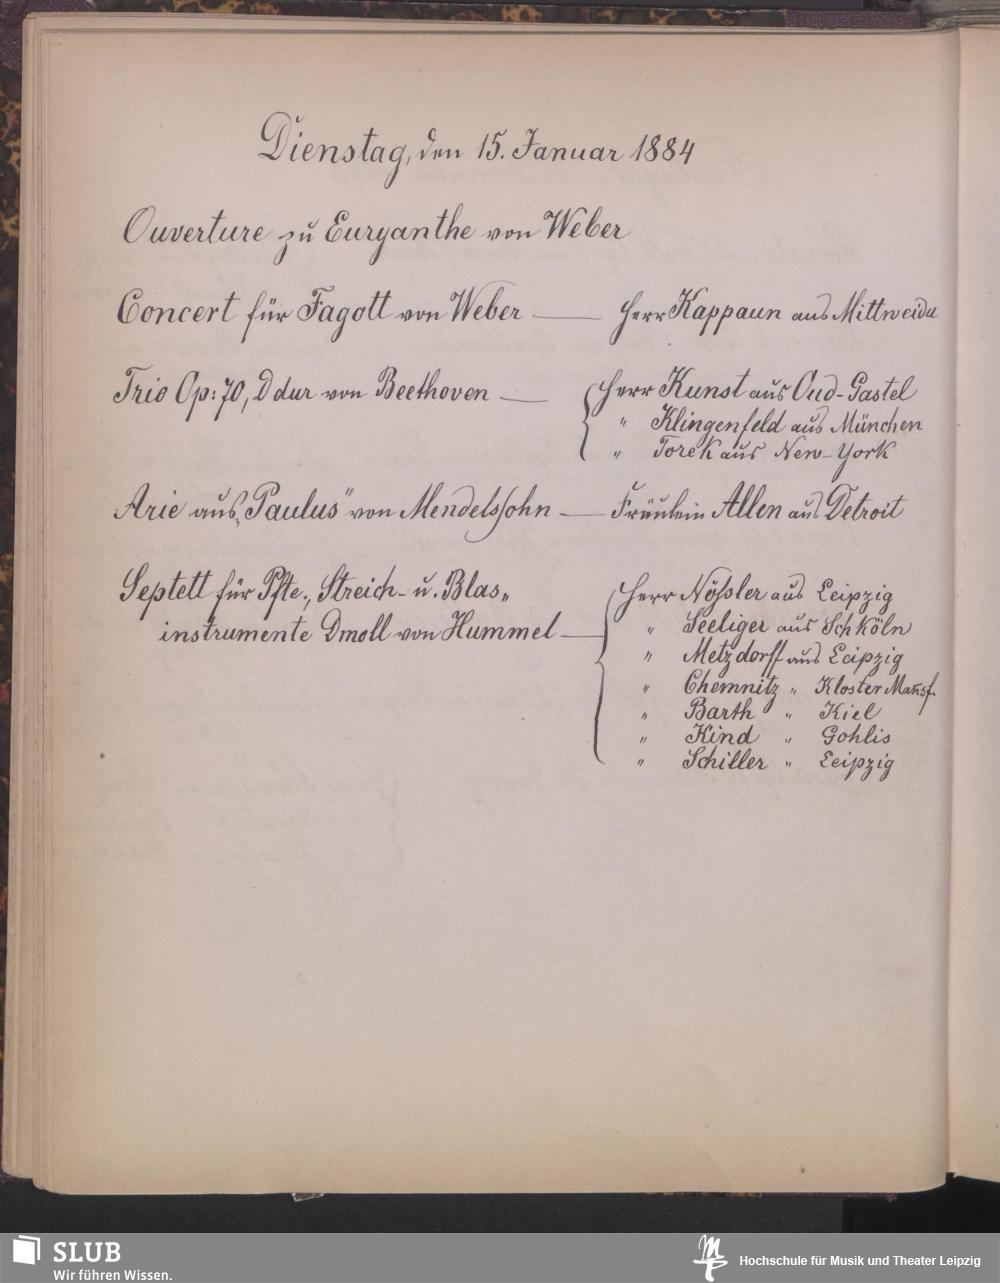 Dienstag, den 15. Januar 1884
Ouverture zu Euryanthe von Weber
Concert für Fagott von Weber — Herr Kappaun aus Mittweida
Trio Op: 70, D dur von Beethoven — Herr Kunst aus Oud-Gastel
" Klingenfeld aus München
" Torek aus New-York
Arie aus „Paulus" von Mendelssohn — Fräulein Allen aus Detroit
Septett für Pfte., Streich- u. Blas„ Herr Nößler aus Leipzig
instrumente Dmoll von Hummel — " Seeliger aus Schköln
" Metzdorff aus Leipzig
" Chemnitz " Kloster Mansf.
" Barth " Kiel
" Kind " Gohlis
" Schiller " Leipzig
SLUB
Wir führen Wissen.
Hochschule für Musik und Theater Leipzig